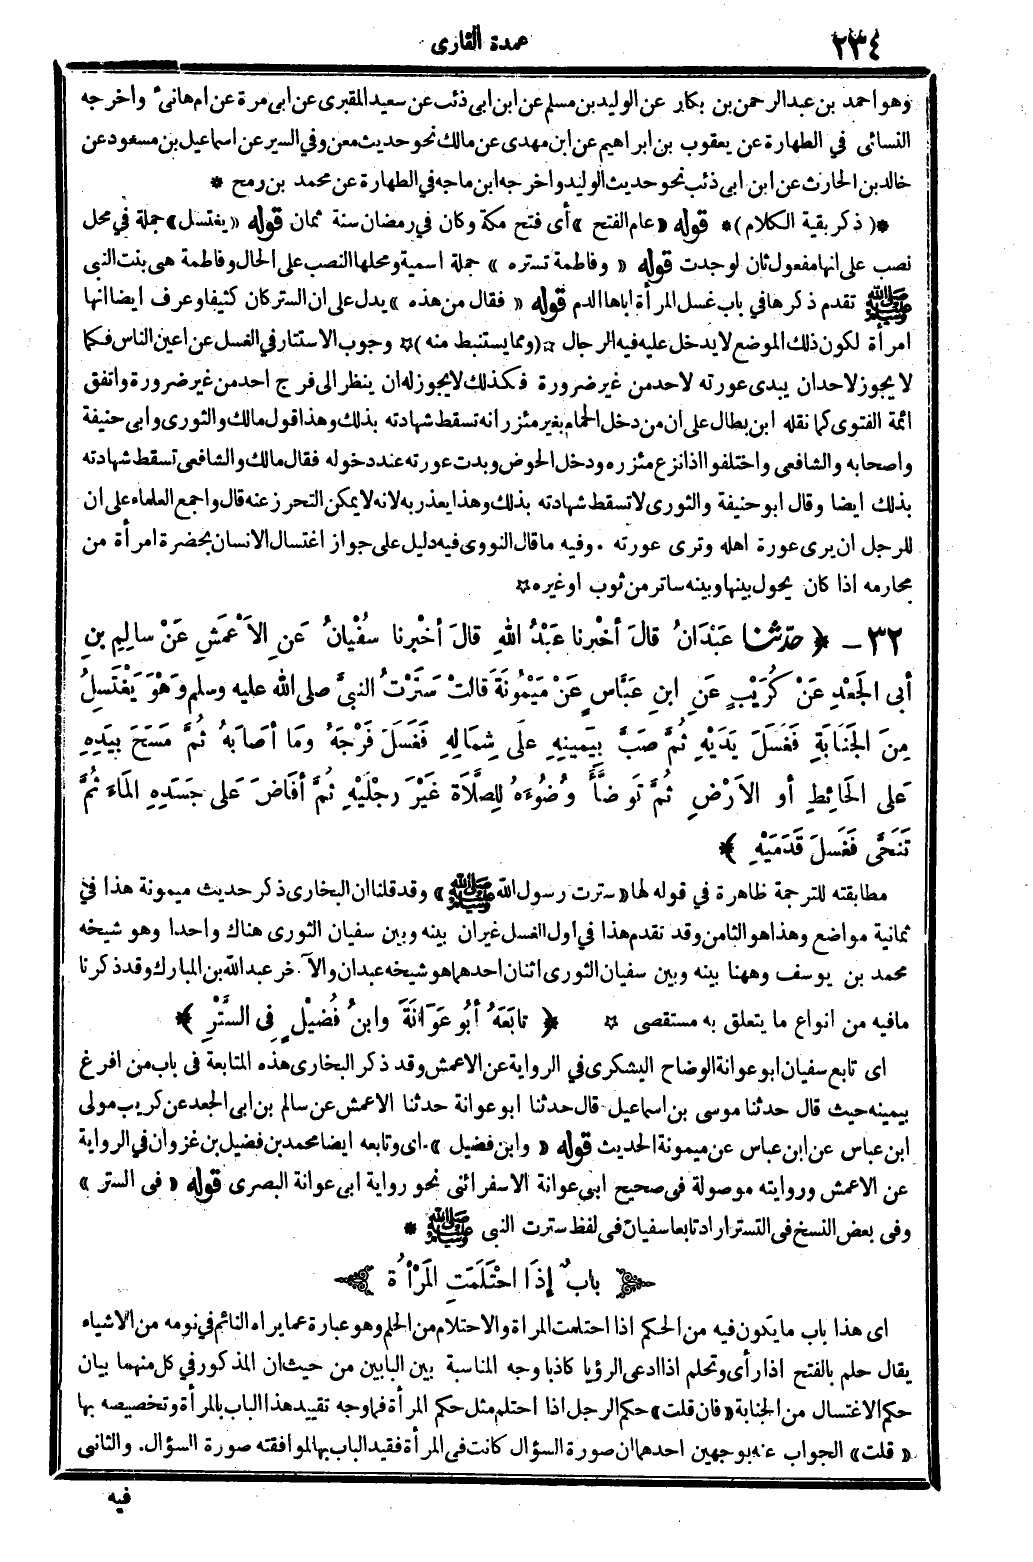 ٢٣٤
عمدة القارى
وهو احمد بن عبد الرحمن بن بكار عن الوليد بن مسلم عن ابن ابى ذئب عن سعيد المقبرى عن ابى مرة عن ام هانىء واخرجه
النسائى في الطهارة عن يعقوب بن ابراهيم عن ابن مهدى عن مالك نحو حديث معن وفي السير عن اسماعيل بن مسعود عن
خالد بن الحارث عن ابن ابى ذئب نحو حديث الوليد واخرجه ابن ماجه في الطهارة عن محمد بن رمح *
*( ذكر بقية الكلام )* قوله «عام الفتح» أى فتح مكة وكان في رمضان سنة ثمان قوله «يغتسل» جملة في محل
نصب على انها مفعول ثان لوجدت قوله «وفاطمة تستره» جملة اسمية ومحلها النصب على الحال وفاطمة هى بنت النبى
ﷺ تقدم ذكرها في باب غسل المرأة اباها الدم قوله «فقال من هذه» يدل على ان الستر كان كثيفا وعرف ايضا انها
امرأة لكون ذلك الموضع لا يدخل عليه فيه الرجال ☆(ومما يستنبط منه)☆ وجوب الاستتار في الغسل عن اعين الناس فكما
لا يجوز لاحد ان يبدى عورته لاحد من غير ضرورة فكذلك لا يجوز له ان ينظر الى فرج احد من غير ضرورة واتفق
ائمة الفتوى كما نقله ابن بطال على ان من دخل الحمام بغير مئزر انه تسقط شهادته بذلك وهذا قول مالك والثورى وابى حنيفة
واصحابه والشافعى واختلفوا اذا نزع مئزره ودخل الحوض وبدت عورته عند دخوله فقال مالك والشافعى تسقط شهادته
بذلك ايضا وقال ابو حنيفة والثورى لا تسقط شهادته بذلك وهذا يعذر به لانه لا يمكن التحرز عنه قال واجمع العلماء على ان
للرجل ان يرى عورة اهله وترى عورته . وفيه ما قال النووى فيه دليل على جواز اغتسال الانسان بحضرة امرأة من
محارمه اذا كان يحول بينها وبينه ساتر من ثوب اوغيره☆
٣٢ – ﴿ حَدَّثنا عَبْدَانُ قالَ أخْبرنا عَبْدُ اللهِ قالَ أخْبرنا سُفْيانُ عَنِ الاَعْمَشِ عَنْ سالِمِ بنِ
أبى الجَعْدِ عَنْ كُرَيْبٍ عَنِ ابنِ عَبَّاسٍ عَنْ مَيْمُونَةَ قالَتْ سَتَرْتُ النبىَّ صلى الله عليه وسلم وَهْوَ يَغْتَسِلُ
مِنَ الجَنَابَةِ فَغَسَلَ يَدَيْهِ ثُمَّ صَبَّ بِيَمِينِهِ عَلَى شِمالِهِ فَغَسَلَ فَرْجَهُ وما أصَابَهُ ثُمَّ مَسَحَ بِيَدِهِ
عَلى الحَائِطِ أو الاَرْضِ ثُمَّ تَوَضَّأَ وُضُوءَهُ لِلصَّلاَةِ غَيْرَ رِجْلَيْهِ ثُمَّ أفَاضَ عَلى جَسَدِهِ الماءَ ثُمَّ
تَنَحَّى فَغَسلَ قَدَمَيْهِ ﴾
مطابقته للترجمة ظاهرة في قوله لها «سترت رسول الله ﷺ» وقد قلنا ان البخارى ذكر حديث ميمونة هذا في
ثمانية مواضع وهذا هو الثامن وقد تقدم هذا في اول الغسل غير ان بينه وبين سفيان الثورى هناك واحدا وهو شيخه
محمد بن يوسف وههنا بينه وبين سفيان الثورى اثنان احدهما هو شيخه عبدان والآخر عبد الله بن المبارك وقد ذكرنا
مافيه من انواع ما يتعلق به مستقصى ☆ ﴿ تابَعَهُ أبُو عَوَانَةَ وابنُ فُضَيْلٍ فِى السَّتْرِ ﴾
اى تابع سفيان ابو عوانة الوضاح اليشكرى في الرواية عن الاعمش وقد ذكر البخارى هذه المتابعة فى باب من افرغ
بيمينه حيث قال حدثنا موسى بن اسماعيل قال حدثنا ابو عوانة حدثنا الاعمش عن سالم بن ابى الجعد عن كريب مولى
ابن عباس عن ابن عباس عن ميمونة الحديث قوله «وابن فضيل». اى وتابعه ايضا محمد بن فضيل بن غزوان في الرواية
عن الاعمش وروايته موصولة فى صحيح ابى عوانة الاسفرائنى نحو رواية ابى عوانة البصرى قوله «فى الستر»
وفى بعض النسخ فى التستر اراد تابعا سفيان فى لفظ سترت النبى ﷺ *
بابٌ إذَا احْتَلَمَتِ المَرْأةُ
اى هذا باب ما يكون فيه من الحكم اذا احتلمت المرأة والاحتلام من الحلم وهو عبارة عما يراه النائم في نومه من الاشياء
يقال حلم بالفتح اذا رأى وتحلم اذا ادعى الرؤيا كاذبا وجه المناسبة بين البابين من حيث ان المذكور في كل منهما بيان
حكم الاغتسال من الجنابة «فان قلت» حكم الرجل اذا احتلم مثل حكم المرأة فما وجه تقييد هذا الباب بالمرأة وتخصيصه بها
«قلت» الجواب عنه بوجهين احدهما ان صورة السؤال كانت فى المرأة فقيد الباب بها لموافقته صورة السؤال. والثانى
فيه